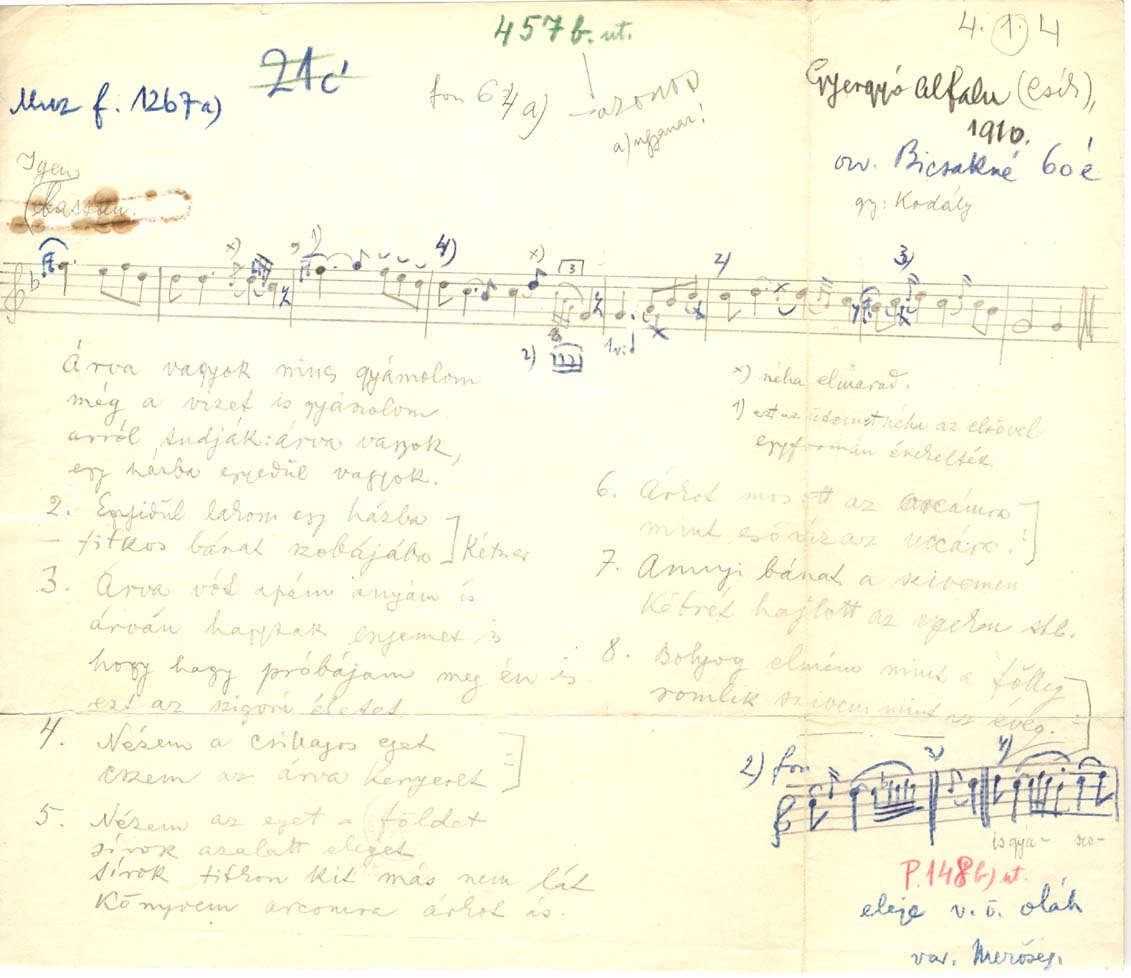 457 b. ut.
4. 1. 4
21c'
Muz f. 1267a)
fon 64 a)
azonos
a) ugyanaz!
Gyergyó Alfalu (Csík),
1910.
Bicsakné 60 é
gy: Kodály
Igen
lassan.
x)
1)
4)
x)
3
2)
3)
2)
1 v. d
Árva vagyok nincs gyámolom
még a vizet is gyászolom
arról tudják: árva vagyok,
egy házba egyedül vagyok.
2. Egyedül lakom egy házba
titkos bánat szobájába ] Kétszer
3. Árva vót apám anyám is
árván hagytak engemet is
hogy hagy próbájam meg én is
ezt az szigorú életet
4. Nézem a csillagos eget
eszem az árva kenyeret ]
5. Nézem az eget a földet
sírok azalatt eleget
sírok titkon kit más nem lát
Könyvem arcomra árkot ás.
x) néha elmarad.
1) ezt az ütemet néha az elsővel
egyformán énekelték.
6. Árkot mosott az orcámra
mint esővíz az uccára. ]
7. Annyi bánat a szivemen
Kétrét hajlott az egeken stb.
8. Bolyog elmém mint a főlleg
romlik szivem mint az üveg.
2) fon
3)
4)
is gyá- szo-
P. 148 b) ut.
eleje v. ö. oláh
var. Mezőség.